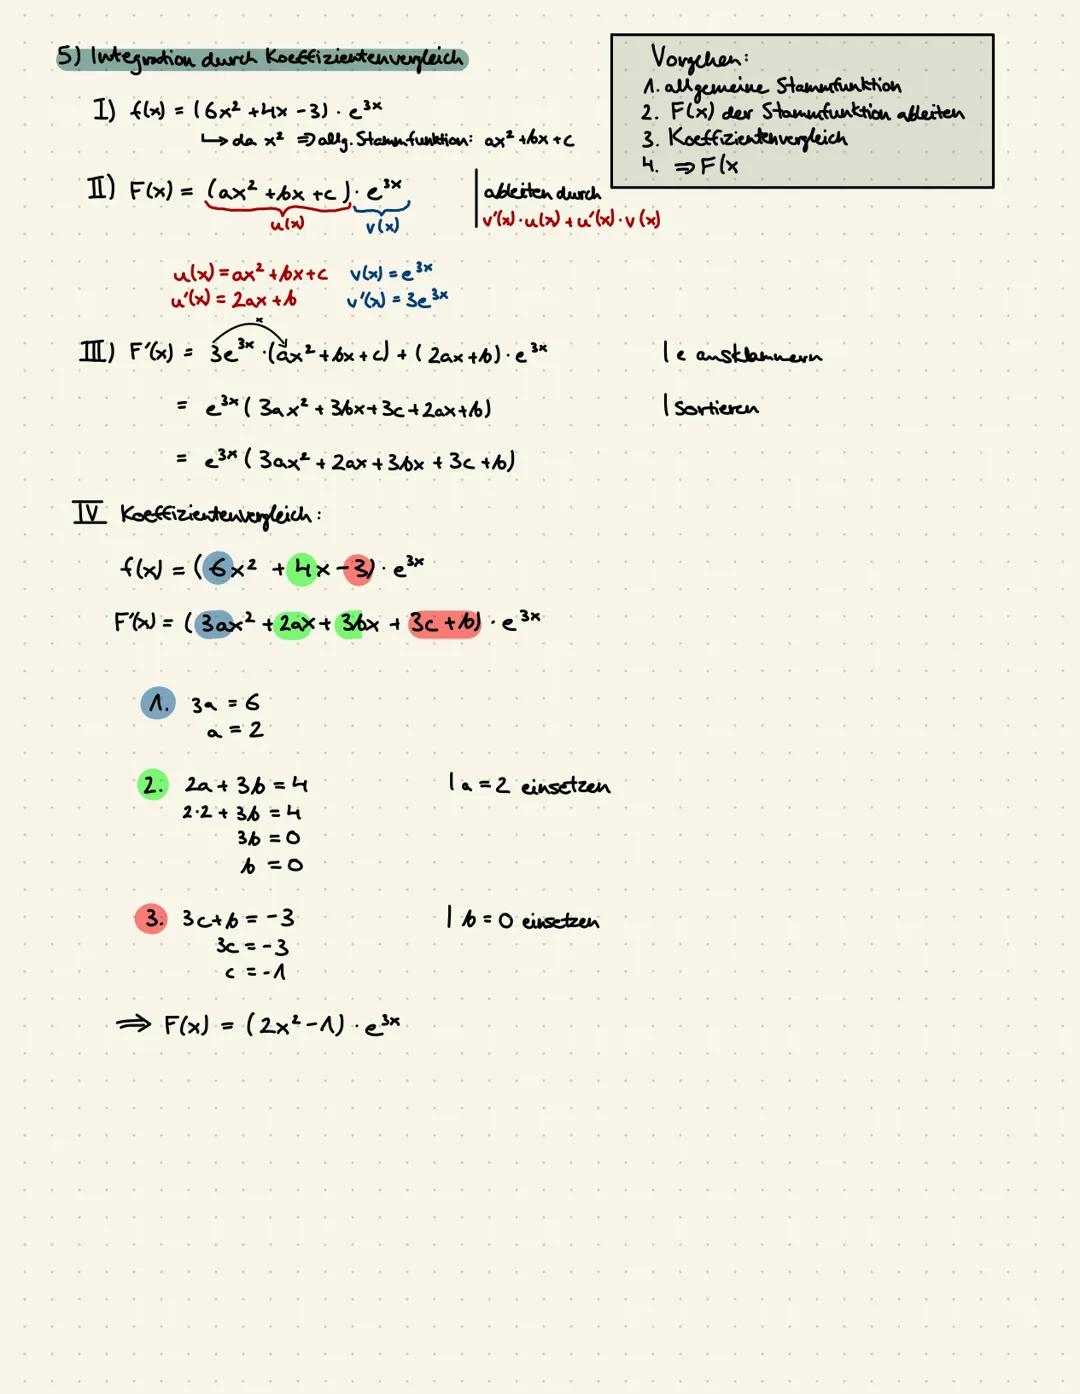 5) Integration durch Koeffizientenvergleich
Vorgehen:
1. allgemeine Stammfunktion
2. F(x) der Stammfunktion ableiten
3. Koeffizientenvergleich
4. ⇒ F(x
I) f(x) = (6x² +4x -3) · e³ˣ
↳ da x² ⇒ allg. Stammfunktion: ax² +bx +c
II) F(x) = (ax² +bx +c) · e³ˣ | ableiten durch
u(x) v(x) v'(x)·u(x) + u'(x)·v(x)
u(x) = ax² +bx+c v(x) = e³ˣ
u'(x) = 2ax +b v'(x) = 3e³ˣ
x
III) F'(x) = 3e³ˣ ·(ax² +bx +c) + (2ax+b) · e³ˣ | e ausklammern
= e³ˣ (3ax² + 3bx+3c+2ax+b) | sortieren
= e³ˣ (3ax² + 2ax + 3bx + 3c +b)
IV Koeffizientenvergleich:
f(x) = (6x² +4x -3) · e³ˣ
F'(x) = (3ax² +2ax+ 3bx + 3c +b) · e³ˣ
1. 3a = 6
a = 2
2. 2a + 3b = 4 | a = 2 einsetzen
2·2 + 3b = 4
3b = 0
b = 0
3. 3c+b = -3 | b = 0 einsetzen
3c = -3
c = -1
⇒ F(x) = (2x² -1) · e³ˣ